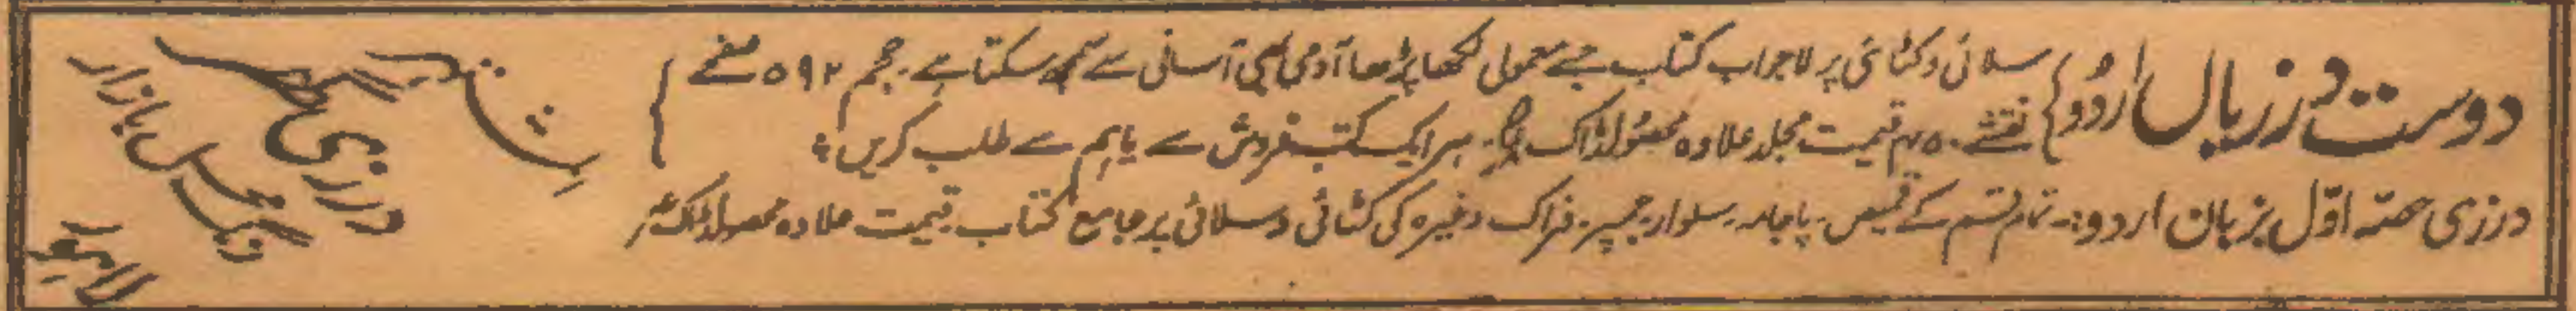 دوست درزیاں اردو
سلائی و کٹائی پر لاجواب کتاب جسے معمولی لکھا پڑھا آدمی بھی آسانی سے سمجھ سکتا ہے۔ حجم ۵۹۲ صفحے
نقشے ۴۵۰ قیمت مجلد علاوہ محصولڈاک ہر ایک کتب فروش سے یا ہم سے طلب کریں
درزی حصہ اوّل بزبان اردو:۔ تمام قسم کے قمیص۔ پاجامہ۔ سلوار۔ جمپر۔ فراک وغیرہ کی کٹائی و سلائی پر جامع کتاب۔ قیمت علاوہ محصولڈاک
درزی
بازار
لاہور